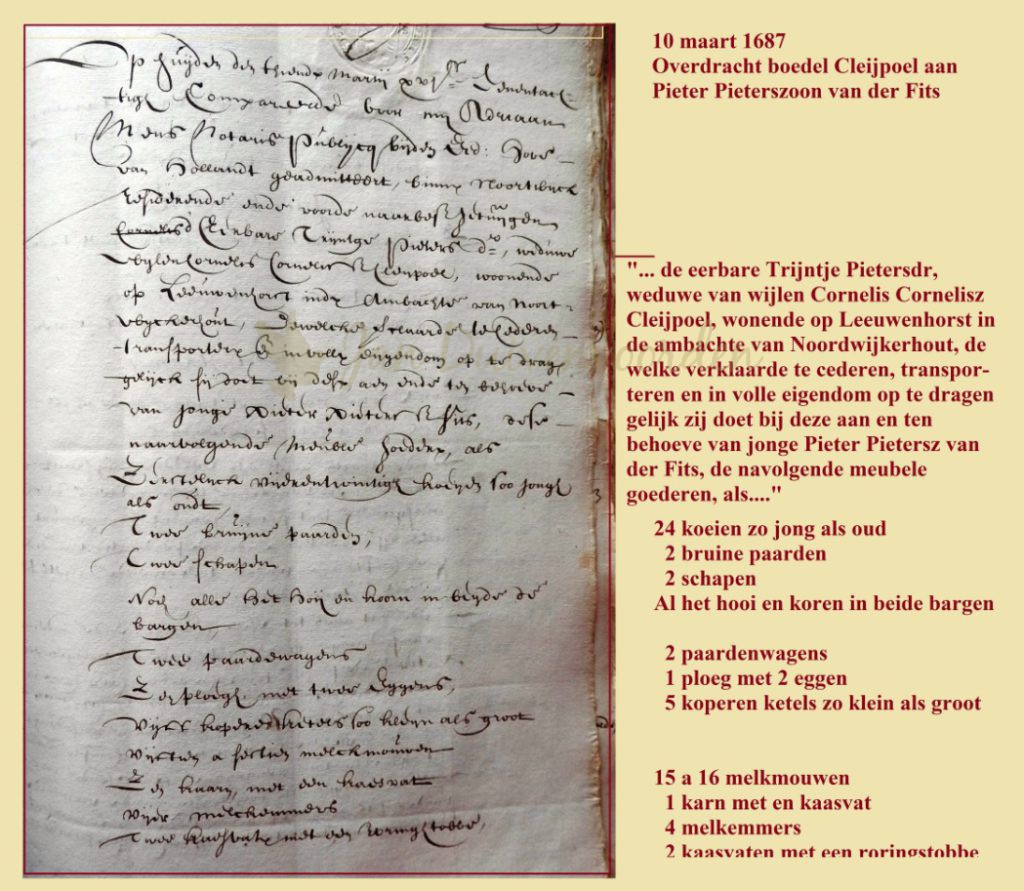 10 maart 1687
Overdracht boedel Cleijpoel aan
Pieter Pieterszoon van der Fits
Op huijden den thiende Martij xvjc Seventach-
tigh Compareerde voor mij Adriaan
Mens Notaris Publijcq bijden Ed: Hove
van Hollandt geadmitteert, binnen Noortwijck
residerende ende voorde naarbes: getuijgen
Cornelis d'Eerbare Trijntge Pieters dr, weduwe
wijlen Cornelis Cornelisz Cleijpoel, woonende
op Leeuwenhorst inde Ambachte van Noort-
wijckerhout, Dewelcke verclaarde te cederen
transporteren en in volle eijgendom op te dragen
gelijck sij doet bij desen aen ende ten behoeve
van jonge Pieter Pietersz Fits, dese
naarvolgende Meuble goederen, als
Eerstelijck vijerentwintigh koeijen soo jongh
als oudt
Twee bruijne paarden,
Twee schapen
Noch alle het hoij en koorn in beijde de
bargen
Twee paardewagens
Een ploegh met twee Eggens,
Vijff kopere ketels soo kleijn als groot
Vijftien a sestien melckmouwen
Een kaarn, met een kaesvat
vijer melckemmers
Twee kaesvaten met een roringhtobbe,
"... de eerbare Trijntje Pietersdr,
weduwe van wijlen Cornelis Cornelisz
Cleijpoel, wonende op Leeuwenhorst in
de ambachte van Noordwijkerhout, de
welke verklaarde te cederen, transpor-
teren en in volle eigendom op te dragen
gelijk zij doet bij deze aan en ten
behoeve van jonge Pieter Pietersz van
der Fits, de navolgende meubele
goederen, als...."
24 koeien zo jong als oud
2 bruine paarden
2 schapen
Al het hooi en koren in beide bargen
2 paardenwagens
1 ploeg met 2 eggen
5 koperen ketels zo klein als groot
15 a 16 melkmouwen
1 karn met en kaasvat
4 melkemmers
2 kaasvaten met een roringstobbe